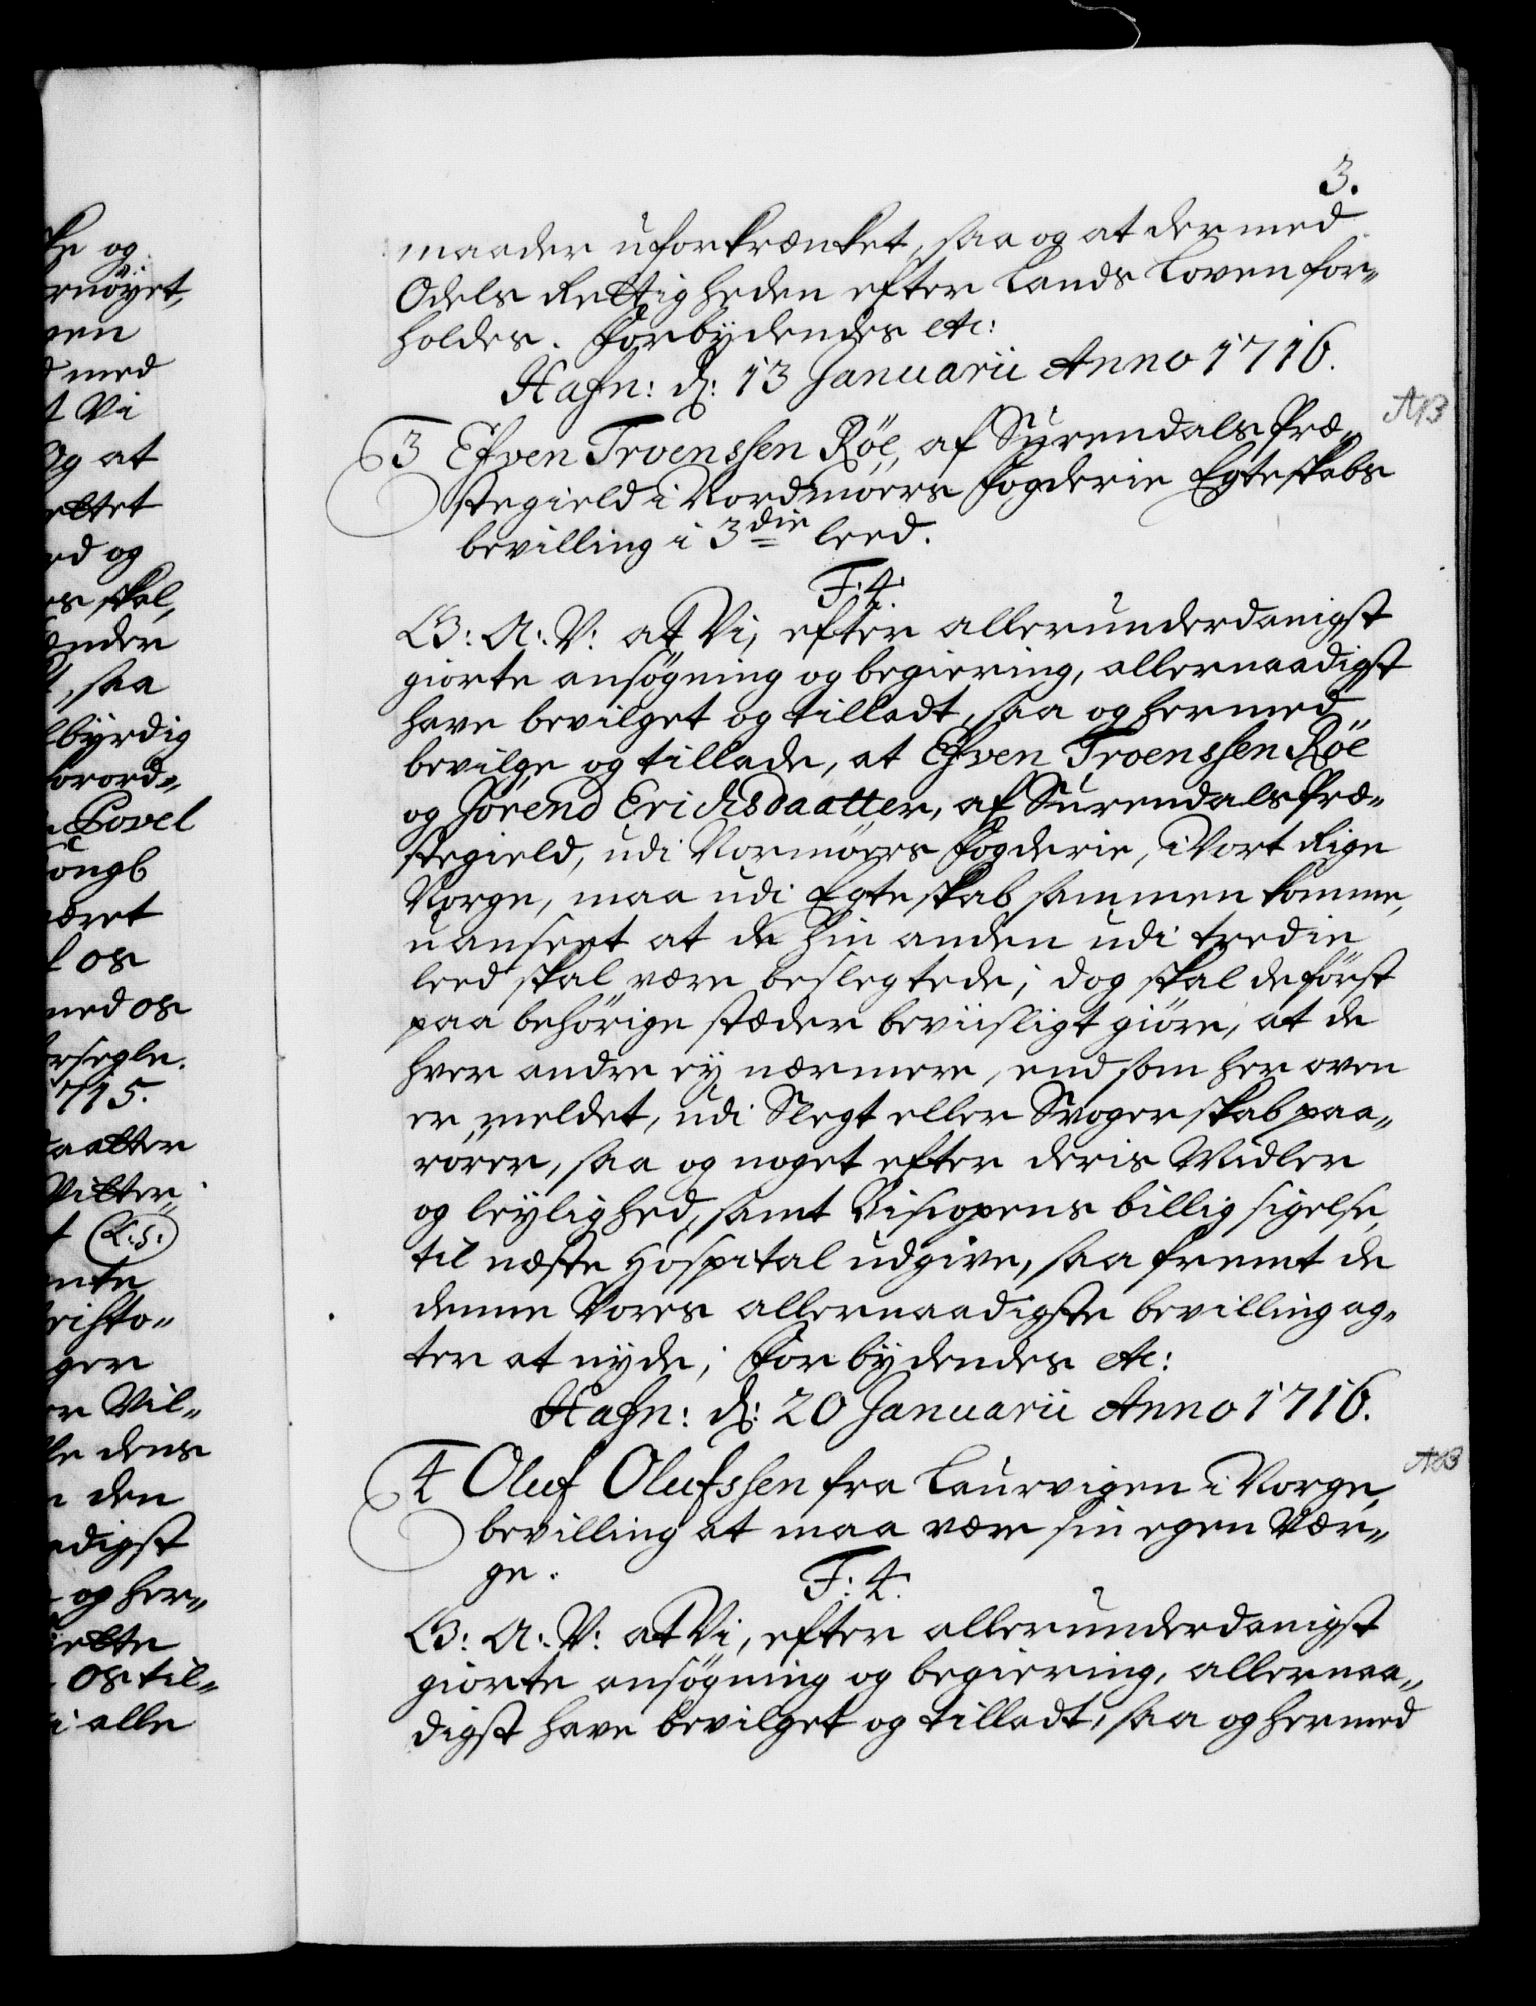 3.
maader uforkrænket, saa og at dermed
Odels Rettigheden efter Lands Loven for„
holdes. Forbydendes etc:
Hafn: d: 13 Januarii Anno 1716.
3 Efven Troenssen Røe, af Surendals Præ„
stegield i Nordmøers Fogderie Egteskabs
bevilling i 3die leed.
F: 4.
G: A: V: at Vi, efter allerunderdanigst
giorte ansøgning og begiering, allernaadigst
have bevilget og tilladt, saa og hermed
bevilge og tillade, at Efven Troenssen Røe
og Jørend Erichsdaatter, af Surendals Præ„
stegield, udi Normøers Fogderie, i Vort Rige
Norge, maa udi Egteskab sammen komme,
uanseet at de hin anden udi tredie
leed skal være beslegtede; dog skal de først
paa behørige stæder beviisligt giøre, at de
hver andre ey nærmere, end som her oven
er meldet, udi Slegt eller Svogerskab paa„
rører, saa og noget efter deris Midler
og leylighed, samt Biscopens billig sigelse,
til næste Hospital udgive, saa fremt de
denne Vores allernaadigste bevilling ag„
ter at nyde; Forbydendes etc:
Hafn: d: 20 Januarii Anno 1716.
4 Oluf Olufssen fra Laurvigen i Norge,
bevilling at maa være sin egen Vær„
ge.
F: 4.
G: A: V: at Vi, efter allerunderdanigst
giorte ansøgning og begiering, allernaa„
digst have bevilget og tilladt, saa og hermed